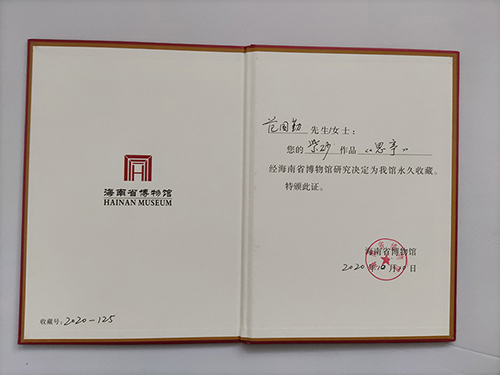 海南省博物馆
HAINAN MUSEUM
收藏号：2020-125
范国勤 先生/女士：
您的 紫砂 作品 《思亭》
经海南省博物馆研究决定为我馆永久收藏。
特颁此证。
海南省博物馆
2020年 月 日